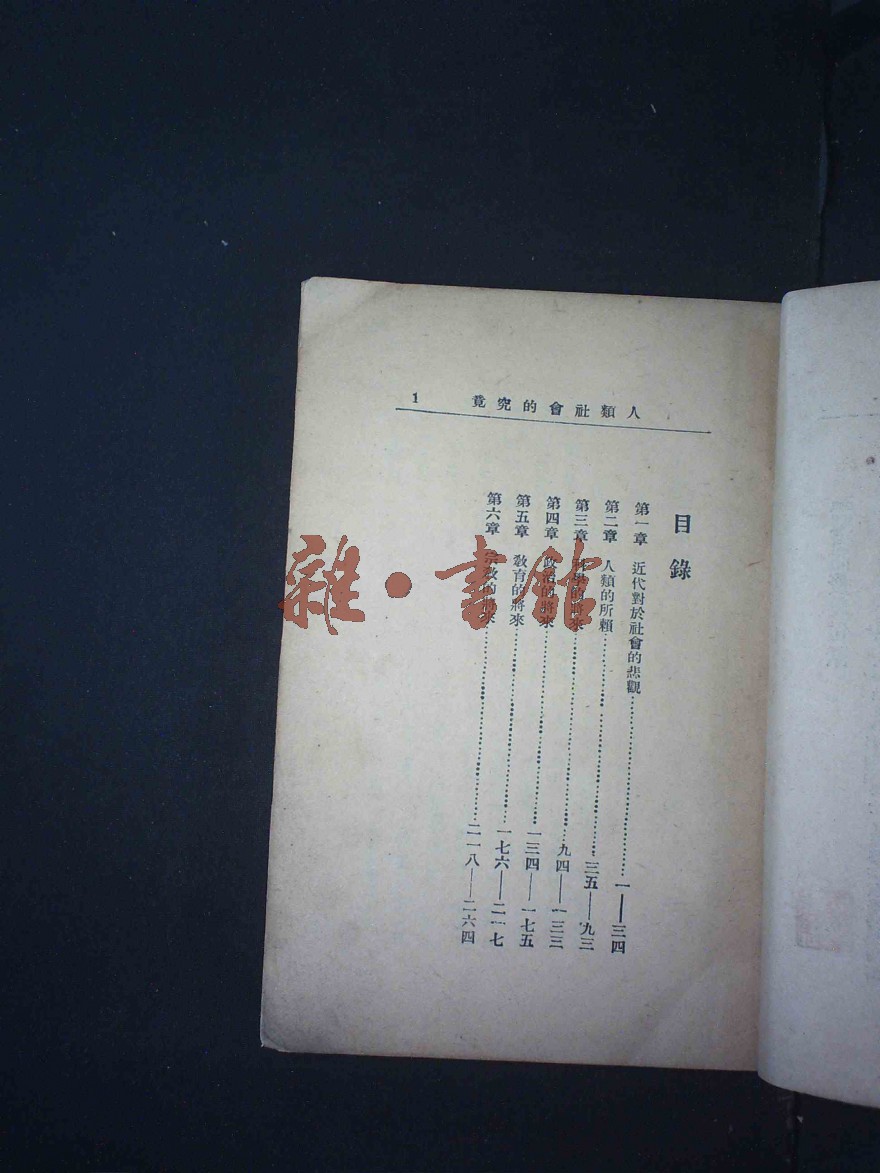 人類社會的究竟 1
目錄
第一章 近代對於社會的悲觀……一——三四
第二章 人類的所賴……三五——九三
第三章 科學的將來……九四——一三三
第四章 政治的將來……一三四——一七五
第五章 教育的將來……一七六——二一七
第六章 宗教的將來……二一八——二六四
雜·書館